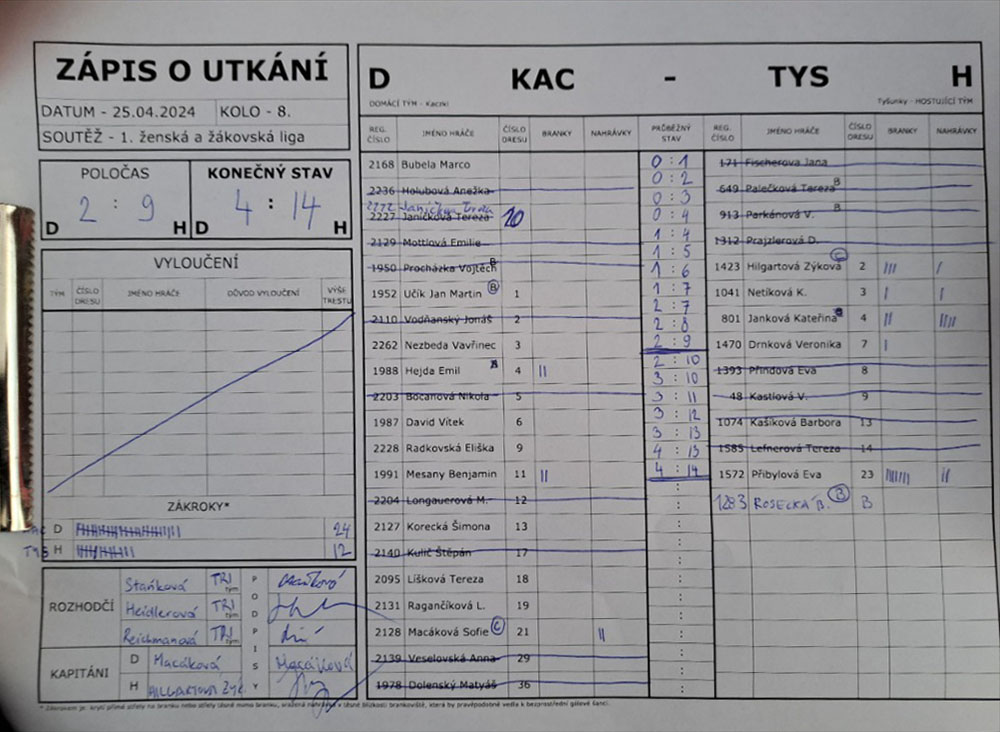 ZÁPIS O UTKÁNÍ
DATUM - 25.04.2024 KOLO - 8.
SOUTĚŽ - 1. ženská a žákovská liga
POLOČAS KONEČNÝ STAV
2 : 9 4 : 14
D H D H
VYLOUČENÍ
TÝM ČÍSLO DRESU JMÉNO HRÁČE DŮVOD VYLOUČENÍ VÝŠE TRESTU
ZÁKROKY*
D 24
TYS H 12
ROZHODČÍ
Staňková TRI tým
Heidlerová TRI tým
Reichmanová TRI tým
PODPISY
KAPITÁNI
D Macáková Macáková
H
D KAC - TYS H
DOMÁCÍ TÝM - Kaczki Tyšunky - HOSTUJÍCÍ TÝM
REG. ČÍSLO JMÉNO HRÁČE ČÍSLO DRESU BRANKY NAHRÁVKY PRŮBĚŽNÝ STAV REG. ČÍSLO JMÉNO HRÁČE ČÍSLO DRESU BRANKY NAHRÁVKY
2168 Bubela Marco
2236 Holubová Anežka
2227 Janíčková Tereza 20
2129 Mottlová Emilie
1950 Procházka Vojtěch B
1952 Učík Jan Martin B 1
2110 Vodňanský Jonáš 2
2262 Nezbeda Vavřinec 3
1988 Hejda Emil 4 ||
2203 Bočanová Nikola 5
1987 David Vítek 6
2228 Radkovská Eliška 9
1991 Mesany Benjamin 11 ||
2204 Longauerová M. 12
2127 Korecká Šimona 13
2140 Kulič Štěpán 17
2095 Líšková Tereza 18
2131 Ragančíková L. 19
2128 Macáková Sofie C 21 ||
2139 Veselovská Anna 29
1978 Dolenský Matyáš 36
0 : 1
0 : 2
0 : 3
0 : 4
1 : 4
1 : 5
1 : 6
1 : 7
2 : 7
2 : 8
2 : 9
2 : 10
3 : 10
3 : 11
3 : 12
3 : 13
4 : 13
4 : 14
171 Fischerova Jana
649 Palečková Tereza B
913 Parkánová V. B
1312 Prajzlerová D.
1423 Hilgartová Zýková C 2 ||| |
1041 Netíková K. 3 | |
801 Janková Kateřina 4 || ||||
1470 Drnková Veronika 7 |
1393 Přindová Eva 8
48 Kastlová V. 9
1074 Kašíková Barbora 13
1585 Lefnerová Tereza 14
1572 Přibylová Eva 23 ||
1283 ROSECKÁ B. B B
* Zákrokem je: krytí přímé střely na branku nebo střely těsně mimo branku,